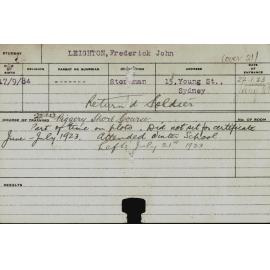 STUDENT LEIGHTON, Frederick John (over 21)
DATE OF BIRTH RELIGION PARENT OR GUARDIAN DATE OF ENTRANCE
17/9/84 ------- 15, Young St.,
Sydney
Return'd Soldier
COURSE OF TRAINING Piggery Short Course. NO. OF ROOM
Part of time on plots. Did not sit for certificate
June - July 1923. Attended Winter School
Left July 21st 1923
RESULTS